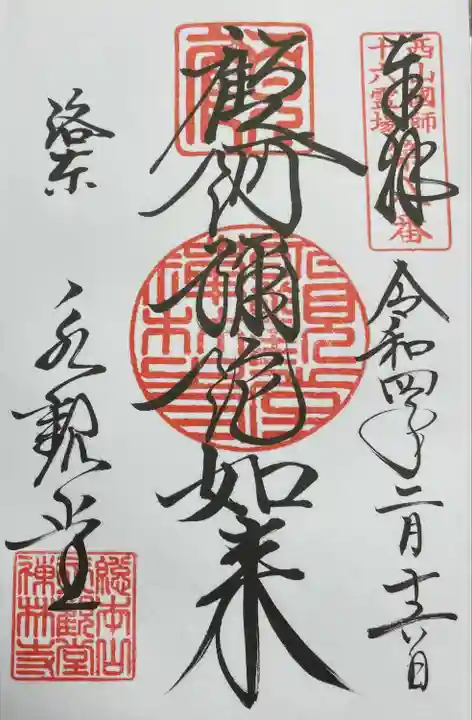 西山國師
十六霊場
奉拝
令和四年二月十六日
顧阿彌陀如来
洛東
永観堂
総本山
永觀堂
禅林寺